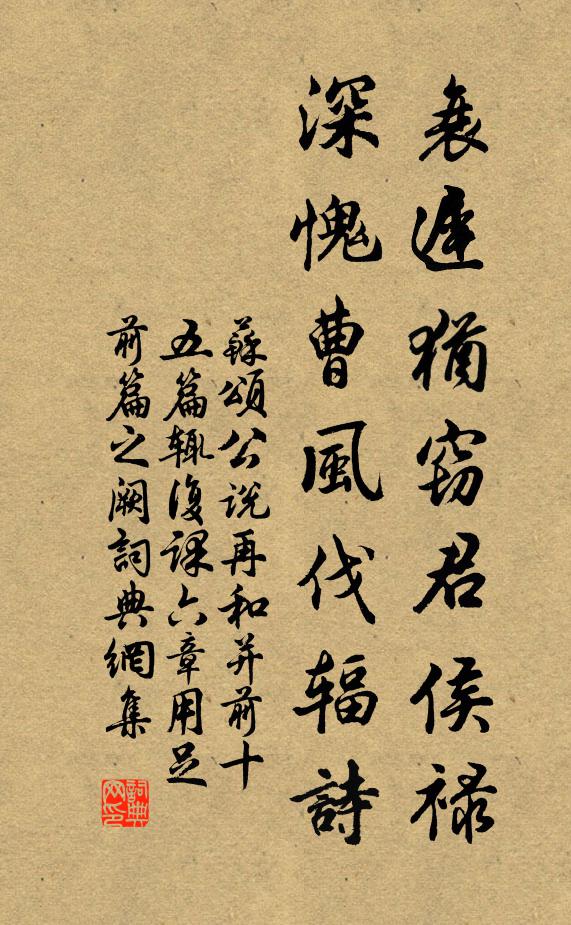 衰遲猶窃君侯祿
深愧曹風伐辐詩
蘇頌公説再和并前十
五篇辄復課六章用足
前篇之阙詞典網集
詞典网印